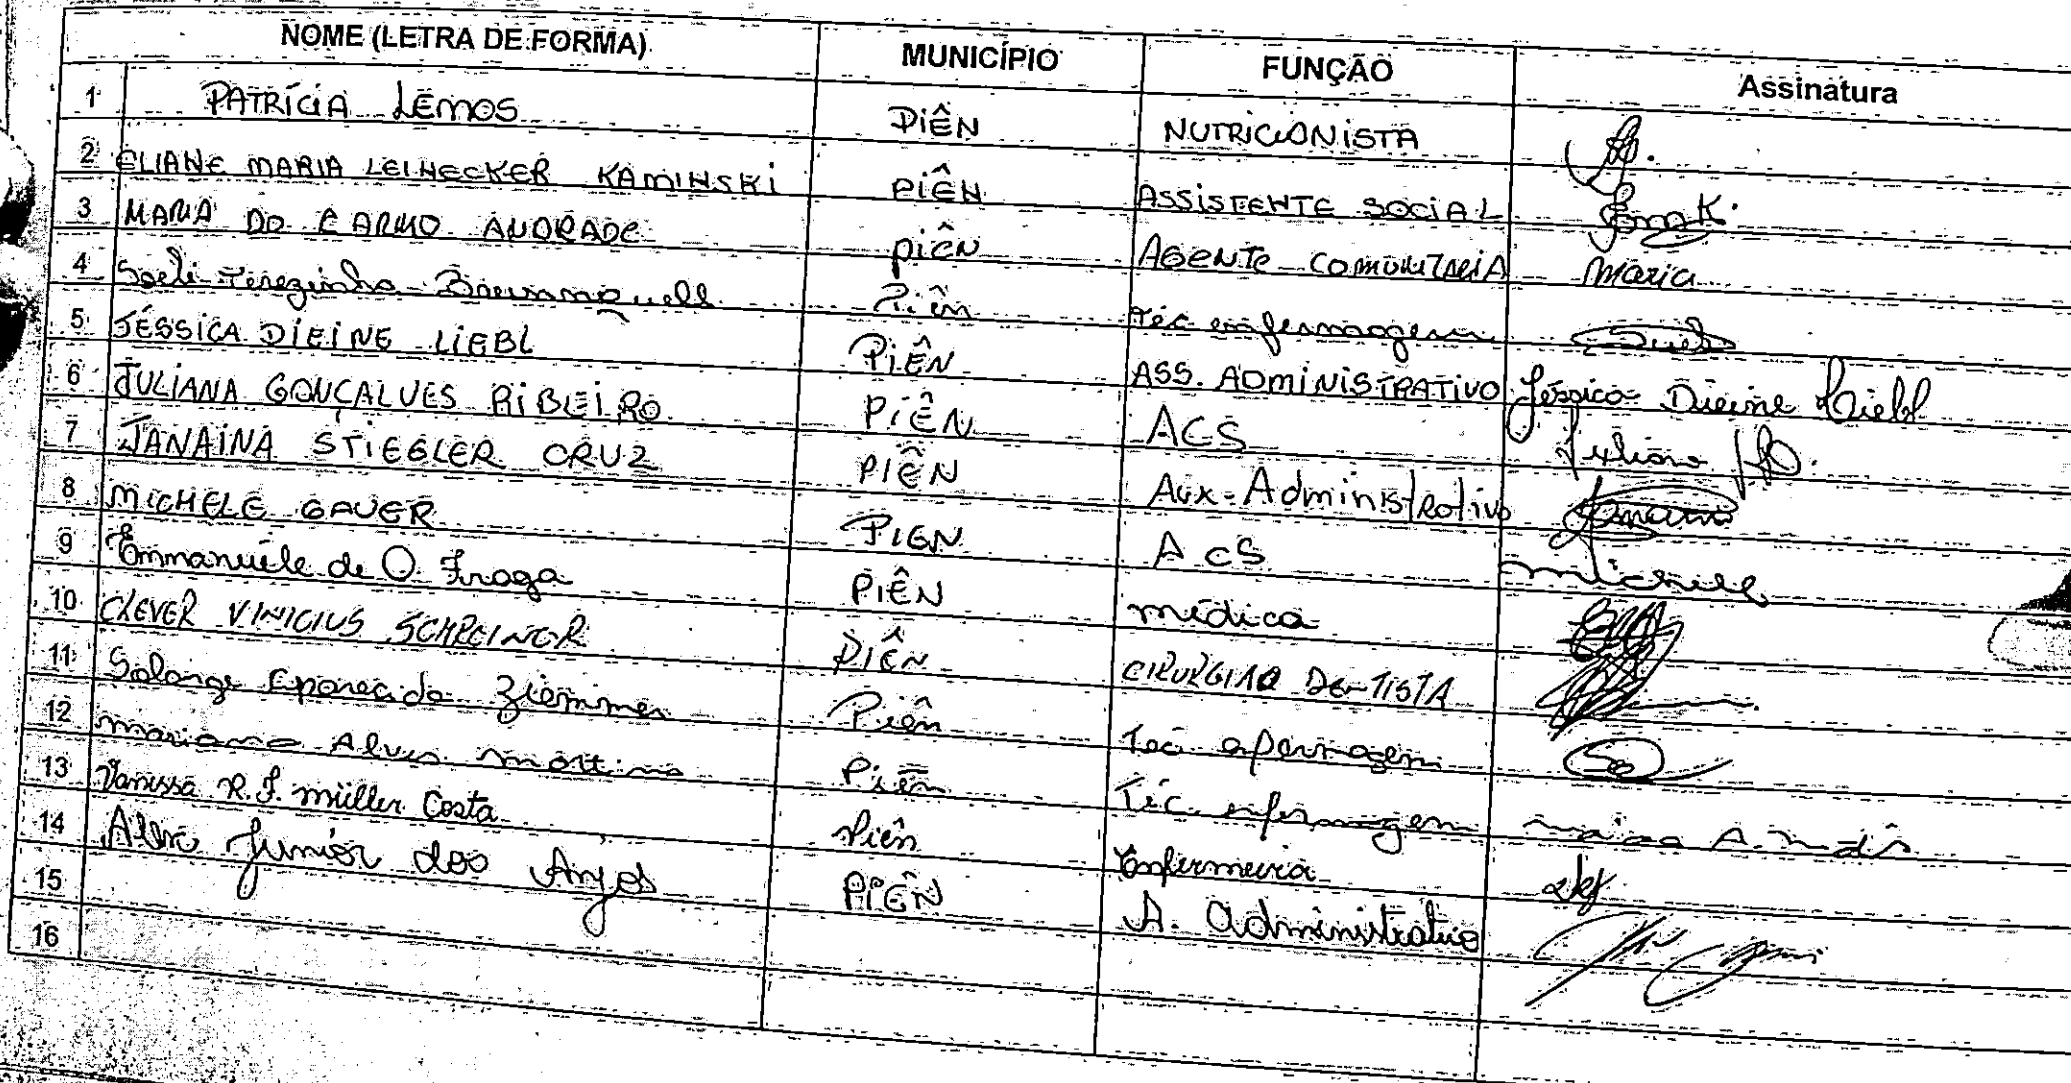 NOME (LETRA DE FORMA) MUNICÍPIO FUNÇÃO Assinatura
1 PATRÍCIA LEMOS PIÊN NUTRICIONISTA
2 ELIANE MARIA LEINECKER KAMINSKI PIÊN ASSISTENTE SOCIAL
3 MARIA DO CARMO ANDRADE PIÊN AGENTE COMUNITARIA Maria
4 Soeli Terezinha Piên Téc enfermagem
5 JÉSSICA DIEINE LIEBL PIÊN ASS. ADMINISTRATIVO Jéssica Dieine Liebl
6 JULIANA GONÇALVES RIBEIRO PIÊN ACS Juliana
7 JANAINA STIEGLER CRUZ PIÊN Aux. Administrativo
8 MICHELE GAUER PIEN ACS Michele
9 Emmanuele de O. Fraga PIÊN médica
10 CLEVER VINICIUS SCHREINER PIÊN CIRURGIAO DENTISTA
11 Solange Aparecida Ziemmer Piên Tec enfermagem
12 Mariana Alves Martins Piên Téc. enfermagem
13 Vanessa R. F. Müller Costa Piên Enfermeira
14 Junior dos Anjos PIÊN A. Administrativo
15
16